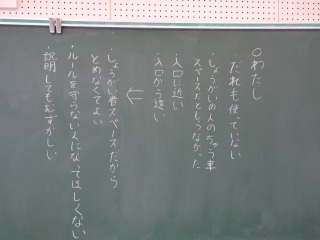 ○わたし
だれも使っていない
・しょうがいの人のちゅう車
スペースだとしらなかった
・入口に近い
・入口から遠い
←
・しょうがい者スペースだから
とめなくてよい
・ルールを守らない人になってほしくない
・説明してもむずかしい